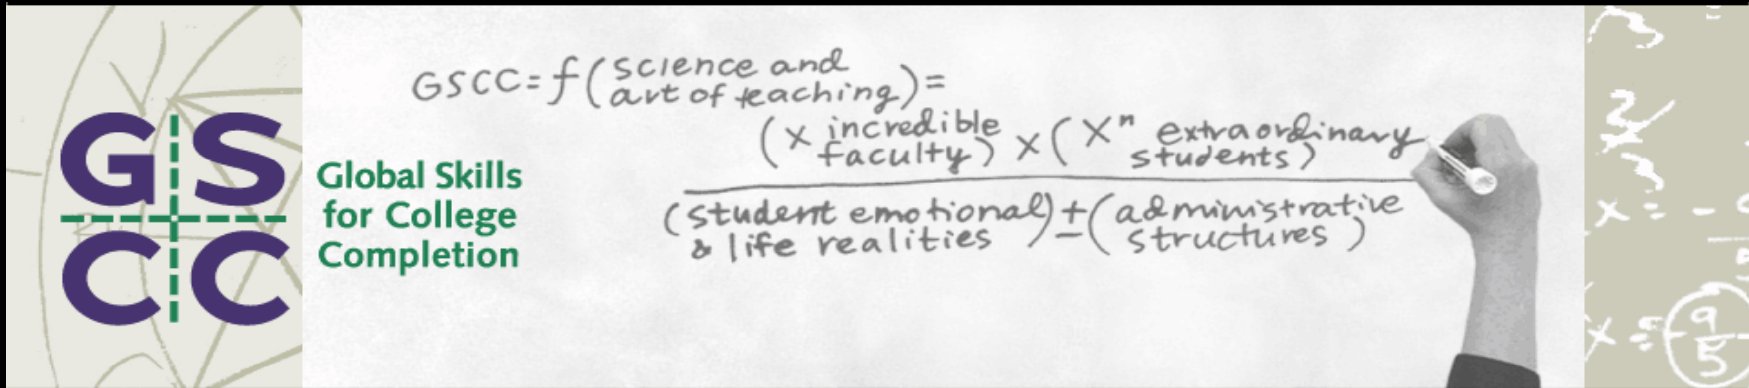 GS
CC
Global Skills
for College
Completion
GSCC=f(science and
art of teaching)=
(x incredible
faculty) x (Xⁿ extraordinary
students)
(student emotional
& life realities) ± (administrative
structures)
x = -
x = 9
5